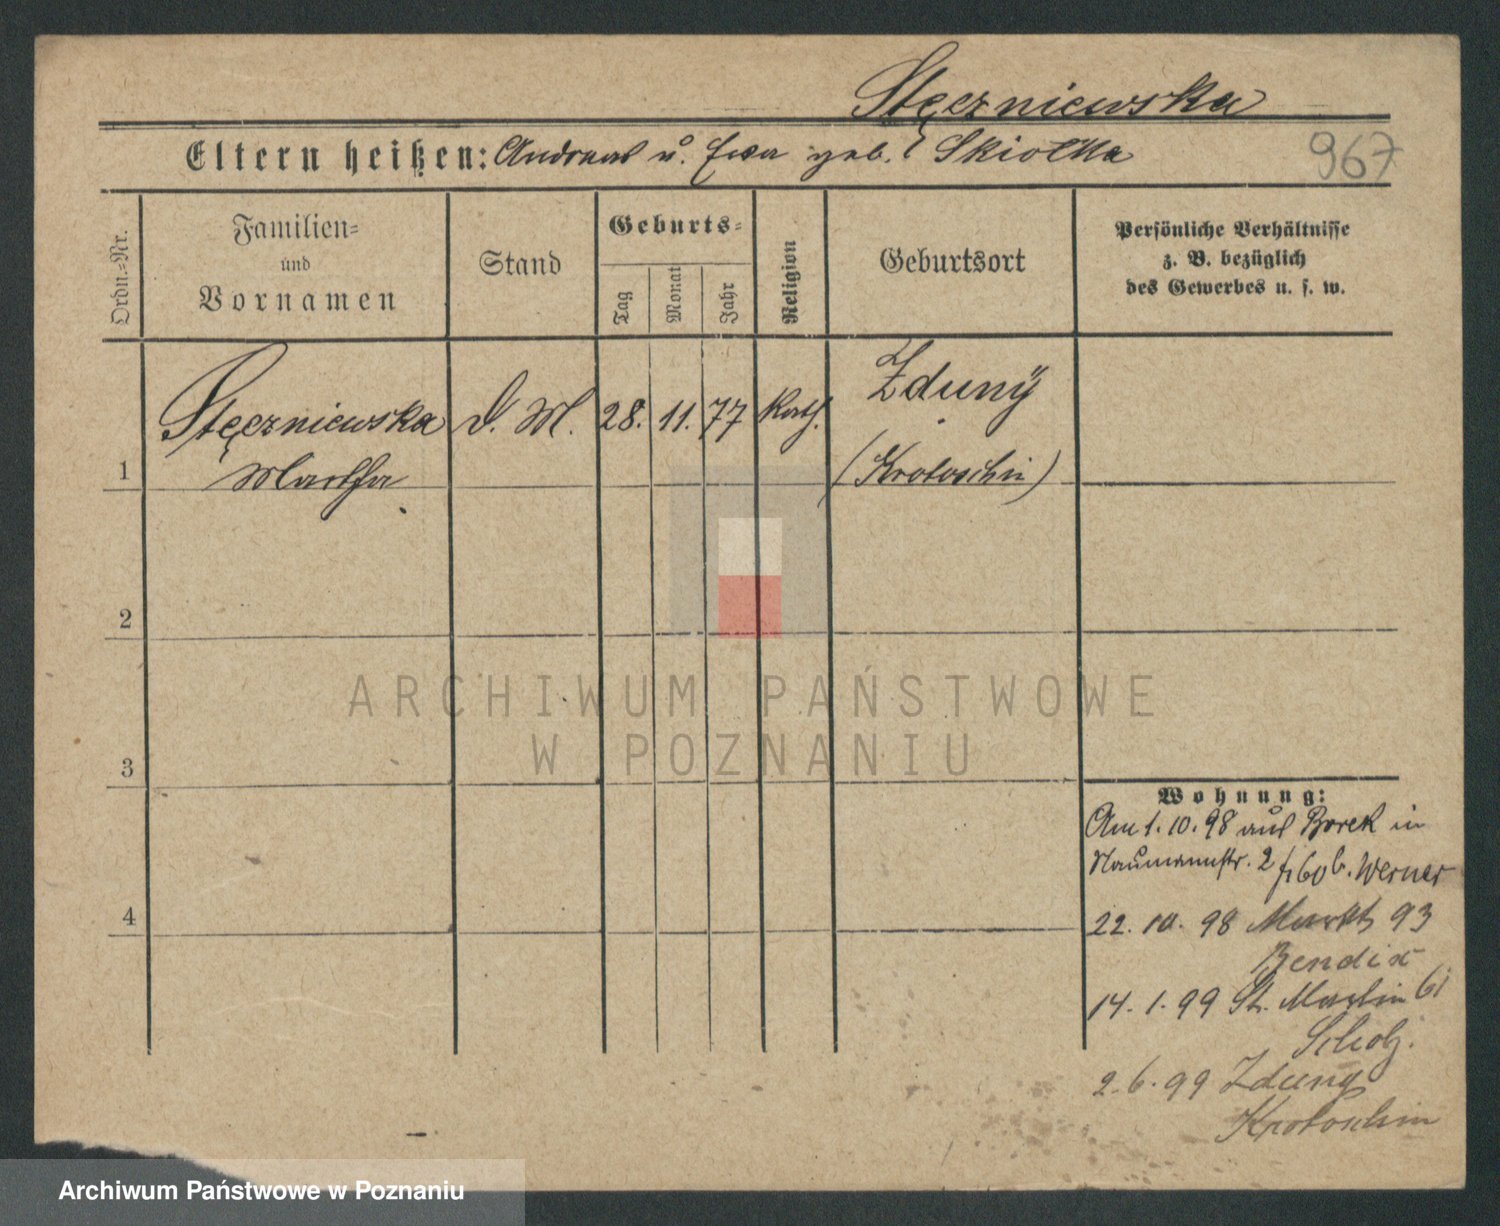 Stęczniewska
Eltern heißen: Andreas u. Ewa geb. Skiotka
967
Ordn.-Nr.
Familien-
und
Vornamen
Stand
Geburts-
Tag
Monat
Jahr
Religion
Geburtsort
Persönliche Verhältnisse
z. B. bezüglich
des Gewerbes u. s. w.
Stęczniewska D. M. 28. 11. 77 Kath. Zduny
1 Martha (Krotoschin)
2
ARCHIWUM PAŃSTWOWE
W POZNANIU
3
Wohnung:
Am 1. 10. 98 aus Borek in
Naumannstr. 2 b. Werner
4
22. 10. 98 Markt 93
Bendix
14. 1. 99 St. Martin 61
Scholz.
2. 6. 99 Zduny
Krotoschin
Archiwum Państwowe w Poznaniu